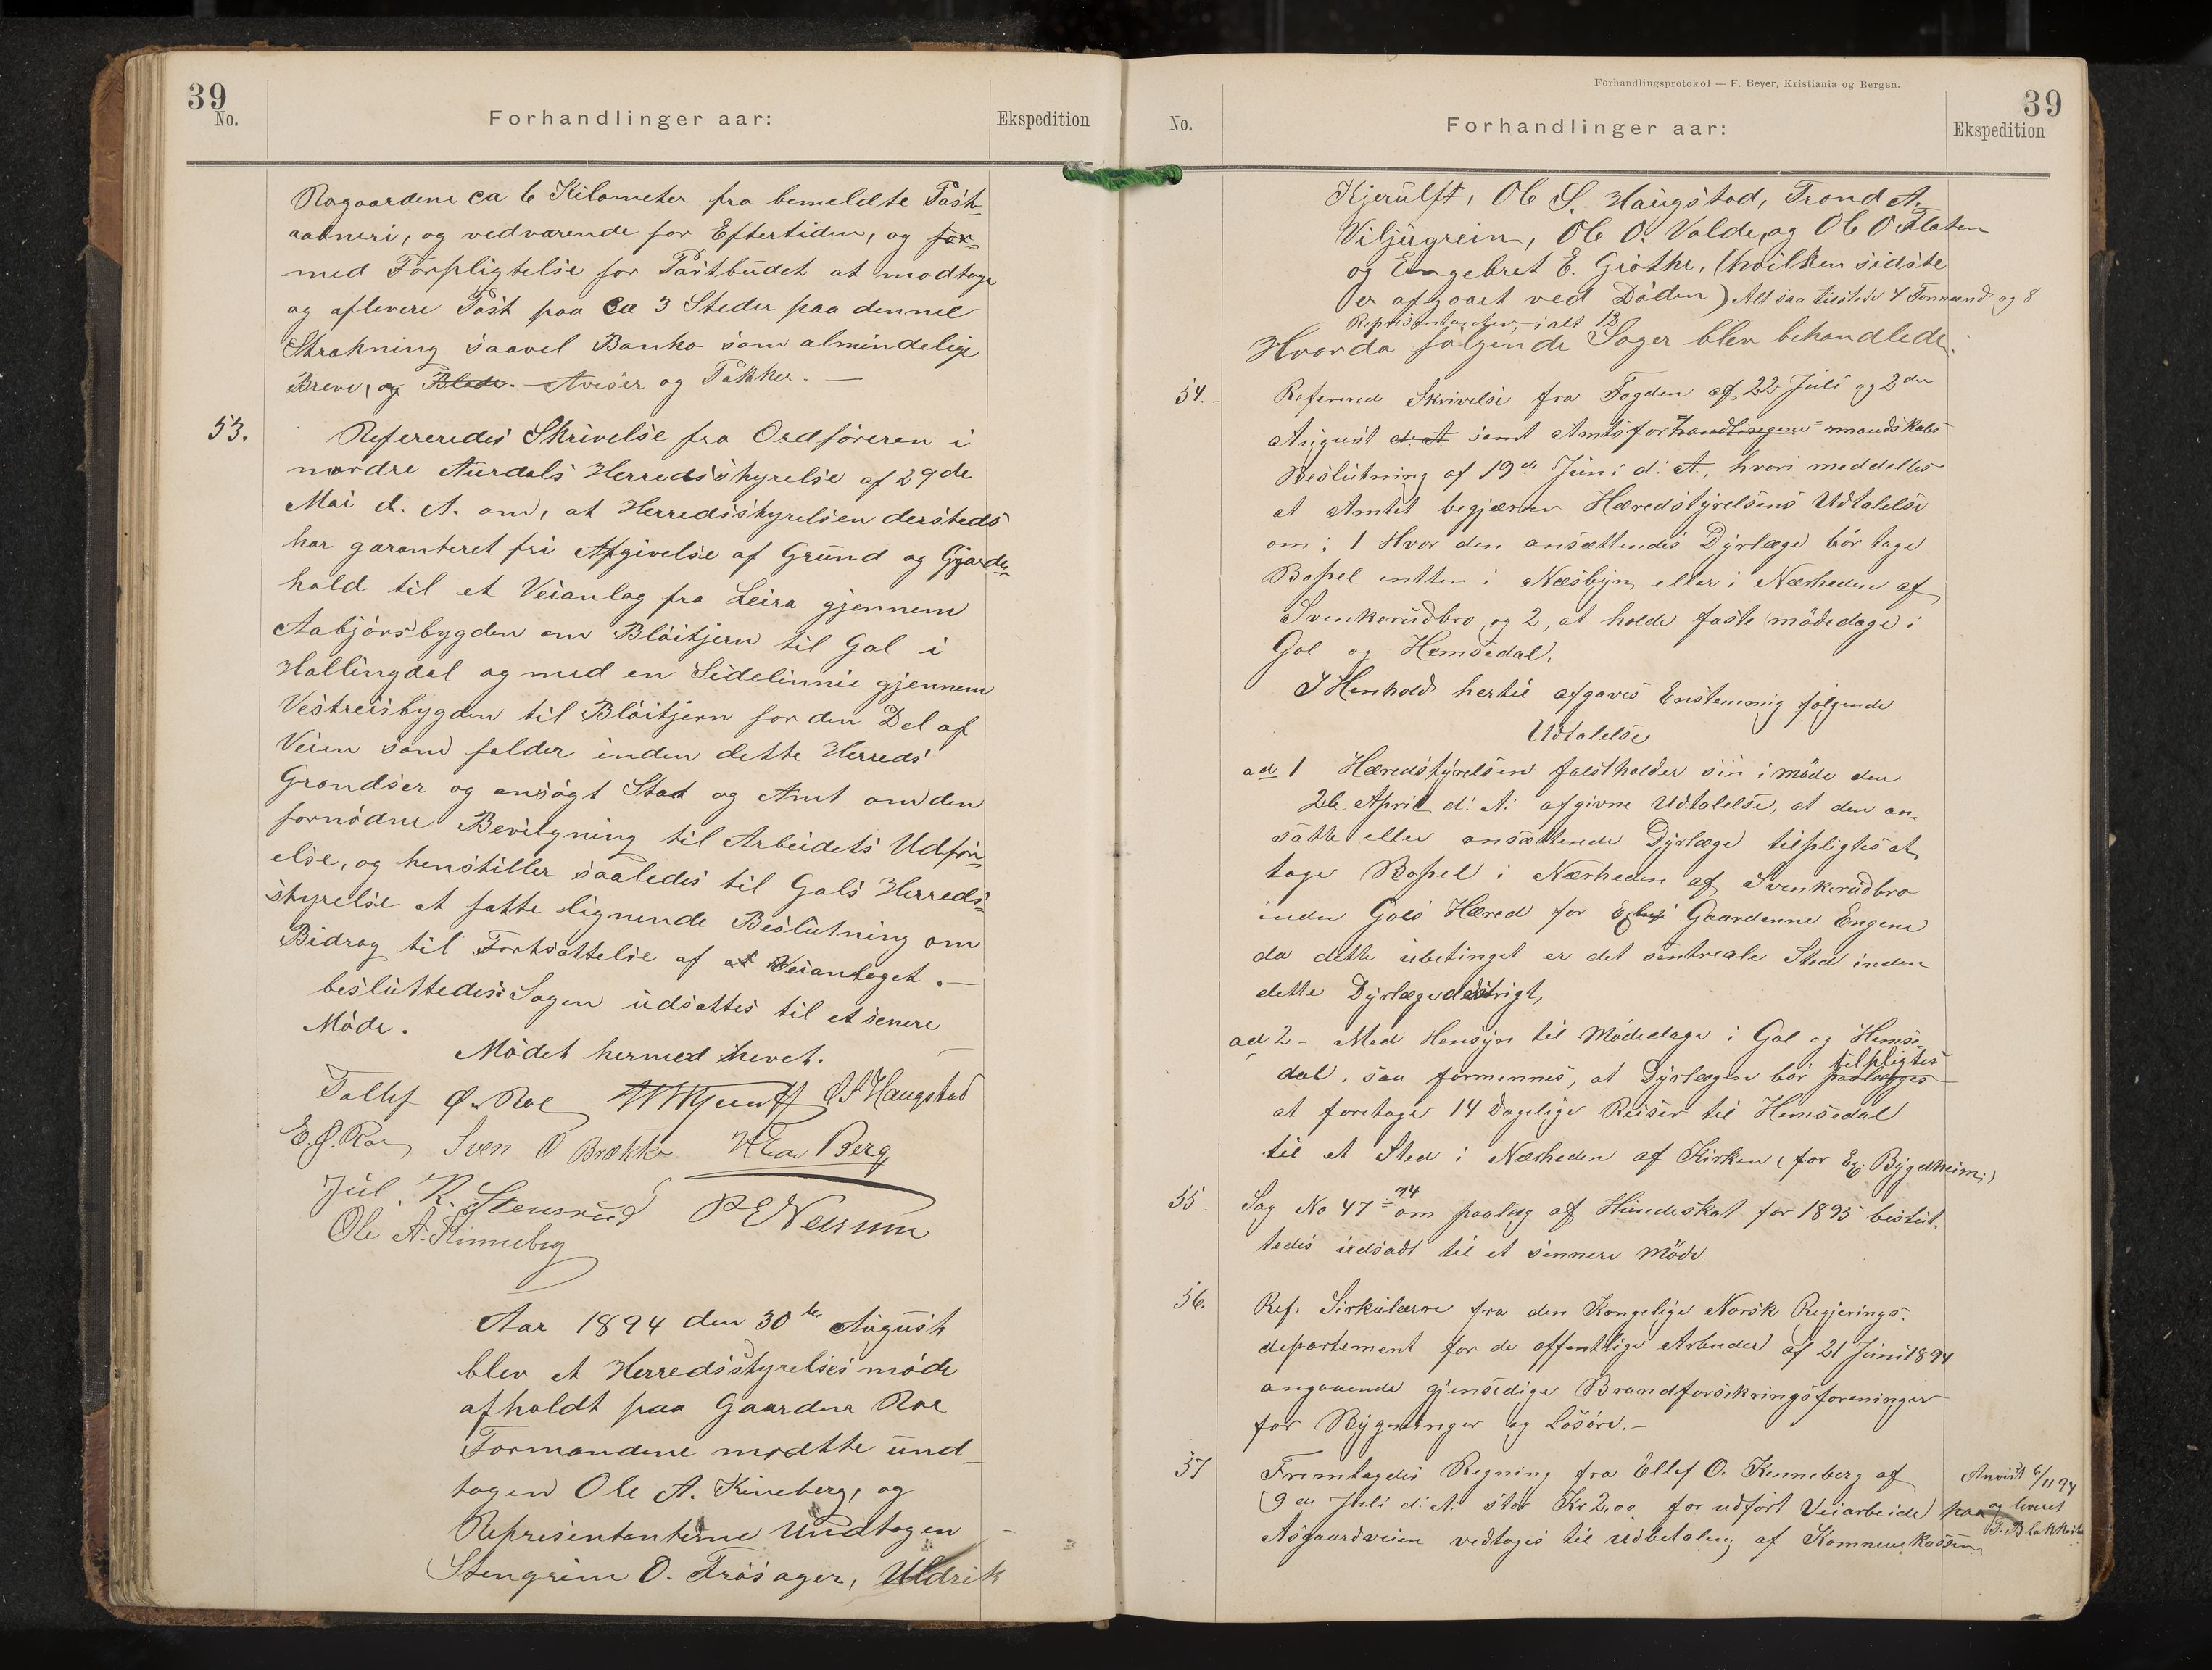 39
No.
Forhandlinger aar:
Ekspedition
Rogaardene ca 6 Kilometer fra bemeldte Post-
aabneri, og vedværende for Eftertiden, og for-
med Forpligtelse for Postbudet at modtage
og aflevere Post paa ca 3 Steder paa denne
Strækning saavel Banko som almindelige
Breve, og Blade. Aviser og Pakker. —
53.
Refereredes Skrivelse fra Ordføreren i
nordre Aurdals Herredsstyrelse af 29de
Mai d. A. om, at Herredsstyrelsen dersteds
har garanteret fri Afgivelse af Grund og Gjærde-
hold til et Veianlæg fra Leira gjennem
Aabjørsbygden om Bløitjern til Gol i
Hallingdal og med en Sidelinnie gjennem
Vestreisbygden til Bløitjern for den Del af
Veien som falder inden dette Herreds
Grændser og ansøgt Stat og Amt om den
fornødne Bevilgning til Arbeidets Udfør-
else, og henstiller saaledes til Gols Herreds-
styrelse at fatte lignende Beslutning om
Bidrag til Fortsættelse af et Veianlæget. —
besluttedes: Sagen udsættes til et senere
Møde.
Mødet hermed hævet. —
Tollef Ø. Roe Kjerulff O S Haugstad
E. O. Roe Sven O Brække Berg
Jul. R. Stensrud P E Nersum
Ole A. Kinneberg
Aar 1894 den 30te August
blev et Herredsstyrelsesmøde
afholdt paa Gaarden Roe
Formændene mødtte und-
tagen Ole A. Kineberg, og
Representanterne Undtagen —
Stengrim O. Trøsager, Uldrik
Forhandlingsprotokol — F. Beyer, Kristiania og Bergen.
39
No.
Forhandlinger aar:
Ekspedition
Kjerulff, Ole S. Haugstad, Trond A.
Viljugrein, Ole O. Valde, og Ole O Flaten
og Engebret E. Grøthe, (hvilken sidste
er afgaaet ved Døden) Altsaa tilstede 4 Formænd og 8
Representanter, ialt 12.
Hvorda følgende Sager blev behandlede:
54.
Referered Skrivelse fra Fogden af 22 Juli og 2den
August d. A samt Amtsforhandlingene-mandskabs
Beslutning af 19de Juni d. A., hvori meddeles
at Amtet begjærer Hæredstyrelsens Udtalelse
om: 1 Hvor den ansættendes Dyrlæge bør tage
Bopel entten i Næsbyn eller i Nærheden af
Svenkerudbro og 2, at holde faste mødedage i
Gol og Hemsedal.
I Henhold hertil afgaves Enstemmig følgende
Udtalelse
ad 1 Hæredstyrelsen fastholder sin i møde den
26 April d. A. afgivne Udtalelse, at den an-
satte eller ansættende Dyrlæge tilpligtes at
tage Bopel i Nærheden af Svenkerudbro
inden Gols Hæred for Gaardenne Engene
da dette ubetinget er det sentreale Sted inden
dette Dyrlægedistrigt
ad 2 - Med Hensyn til Mødedage i Gol og Hemse-
dal, saa formennes, at Dyrlægen bør paalægges tilpligtes
at foretage 14 Dagelige Reiser til Hemsedal
til et Sted i Nærheden af Kirken (for Ex. Bygdheim)
55.
Sag No 47-94 om paalæg af Hundeskat for 1895 beslut-
tedes udsadt til et sennere Møde.
56.
Ref. Sirkulære fra den Kongelige Norsk Regjerings-
departement for de offentlige Arbeider af 21 Juni 1894
angaaende gjensidige Brandforsikringsforeninger
for Bygninger og Løsøre. —
57
Fremlagdes Regning fra Ellef O. Kinneberg af
9de Juli d. A. stor Kr 2,00 for udført Veiarbeide paa
Aasgaardveien vedtoges til udbetaling af Kommunekassen
Anvist 6/11 94
og leveret